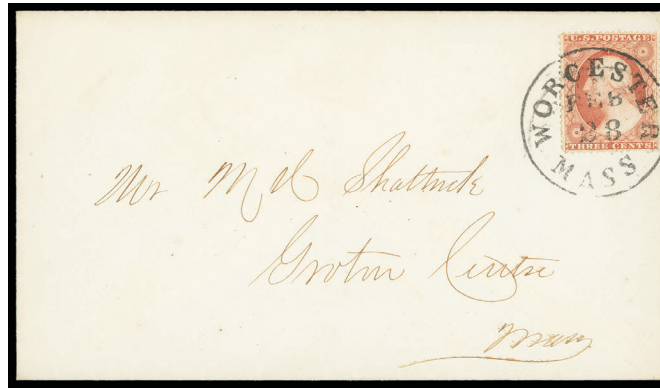 U.S. POSTAGE
THREE CENTS
WORCESTER
FEB
28
MASS
Mr M d Shattuck
Groton Centre
Mass